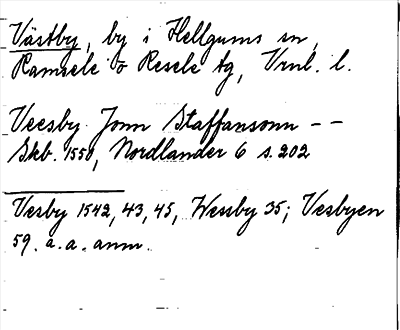 Västby, by i Hellgums sn,
Ramsele o Resele tg, Vrnl. l.
Veesby Jonn Staffansonn – –
Skb. 1550, Nordlander 6 s. 202
Vesby 1542, 43, 45, Wessby 35; Vesbyen
59. a. a. anm.